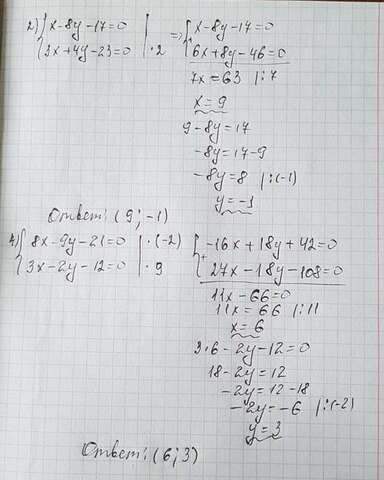 2) { x-8y-17=0 ⇒ { x-8y-17=0
3x+4y-23=0 | ·2 6x+8y-46=0
7x=63 |:7
x=9
9-8y=17
-8y=17-9
-8y=8 |:(-1)
y=-1
Ответ: (9; -1)
4) { 8x-9y-21=0 | ·(-2) { -16x+18y+42=0
3x-2y-12=0 | ·9 + 27x-18y-108=0
11x-66=0
11x=66 |:11
x=6
3·6-2y-12=0
18-2y=12
-2y=12-18
-2y=-6 |:(-2)
y=3
Ответ: (6; 3)